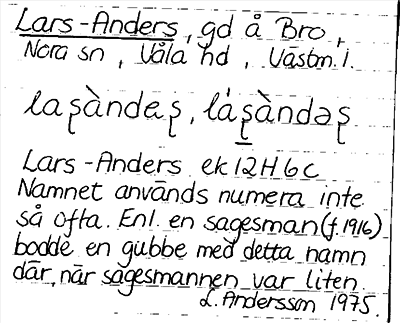 Lars-Anders, gd å Bro,
Nora sn, Våla hd, Västm. l.
laʂàndeʂ, lá̱ʂàndəʂ
Lars-Anders ek 12H6c
Namnet används numera inte
så ofta. Enl. en sagesman (f. 1916)
bodde en gubbe med detta namn
där, när sagesmannen var liten.
L. Andersson 1975.